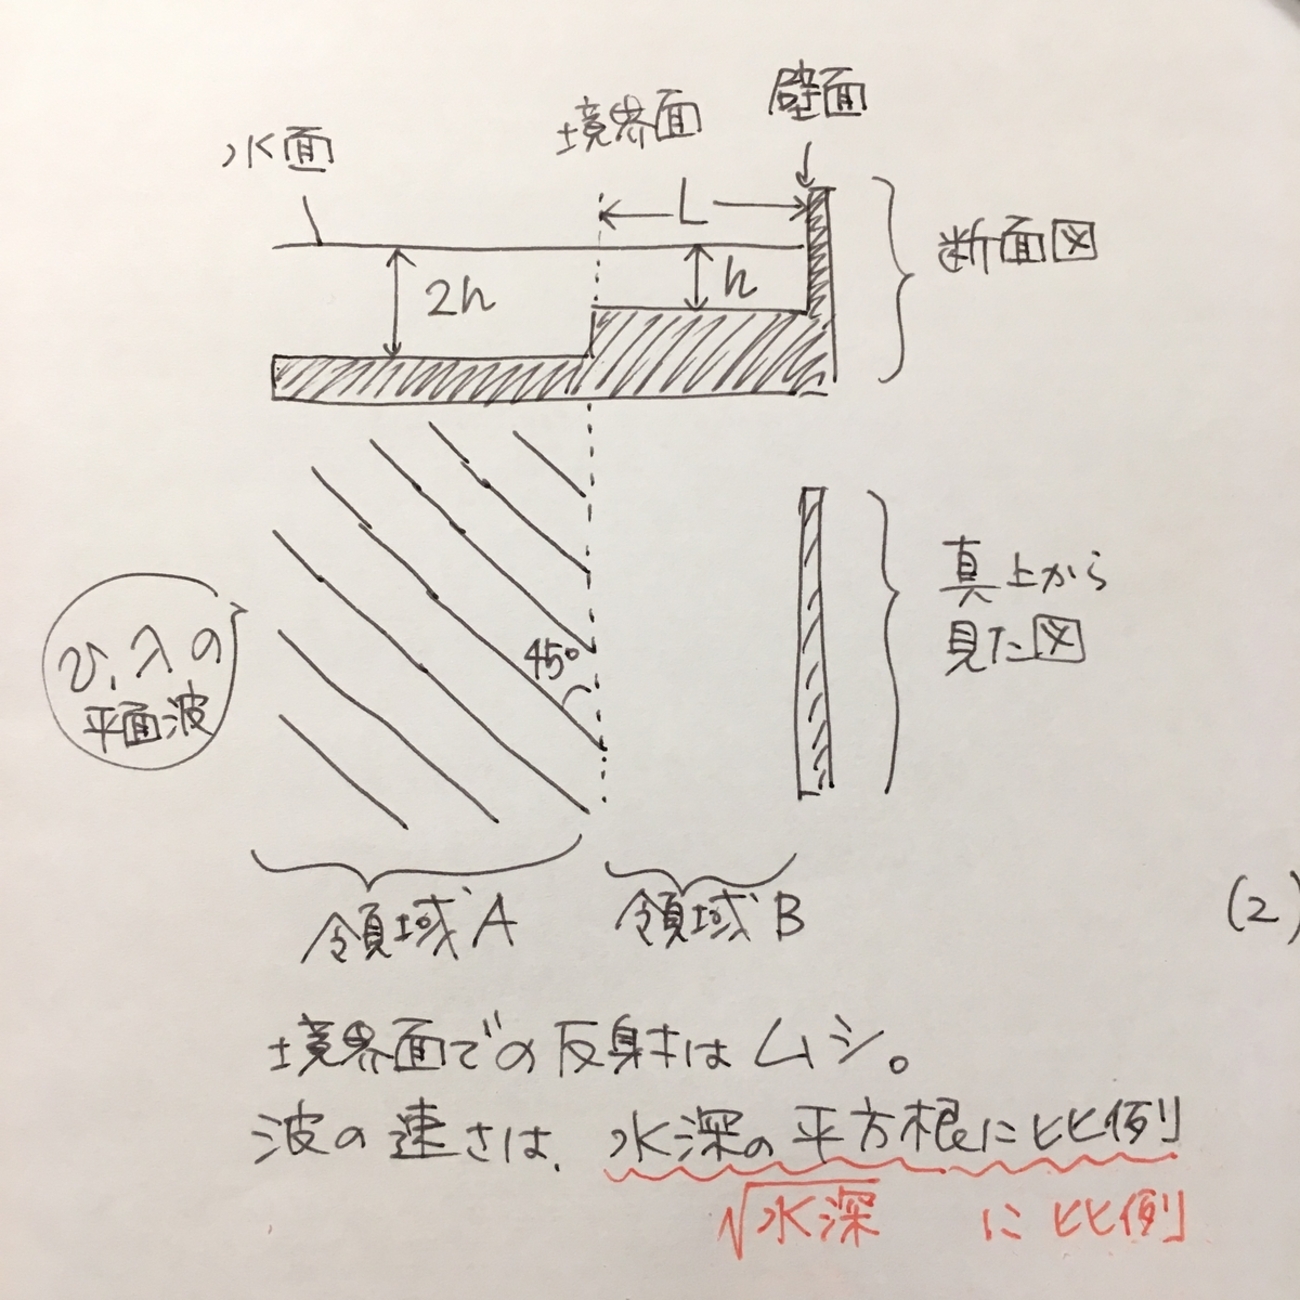 壁面
境界面
水面
L
断面図
2h
h
真上から
見た図
45°
v, λの
平面波
領域A
領域B
(2)
境界面での反射はムシ。
波の速さは、水深の平方根に比例
√水深 に比例